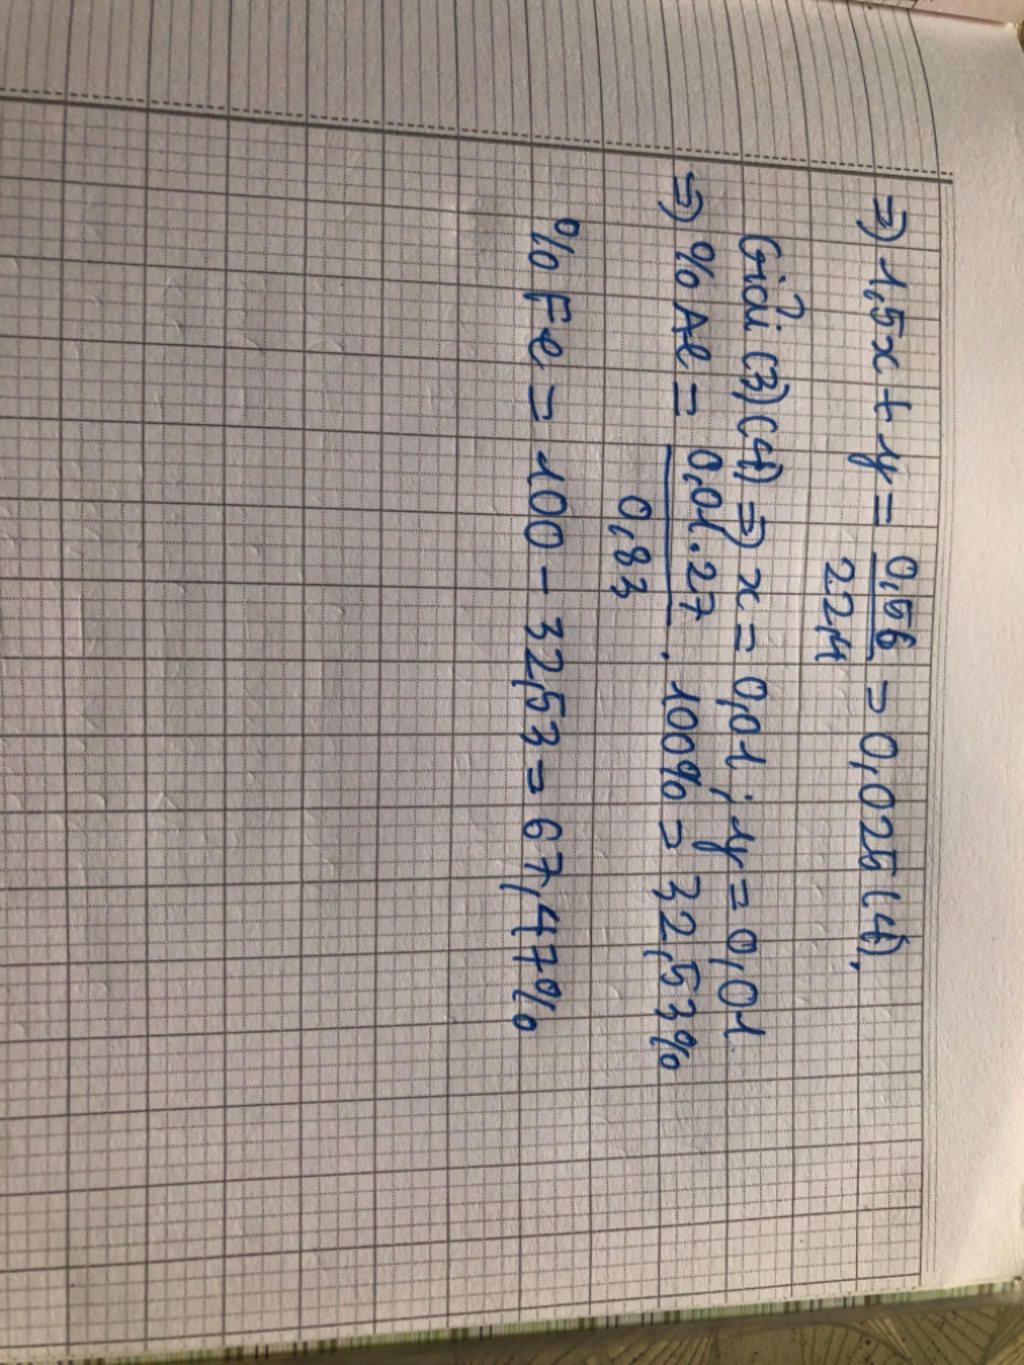 => 1,5x + y = 0,56 / 22,4 = 0,025 (4).
Giải (3) (4) => x = 0,01 ; y = 0,01.
=> % Al = 0,01.27 / 0,83 . 100% = 32,53%
% Fe = 100 - 32,53 = 67,47%